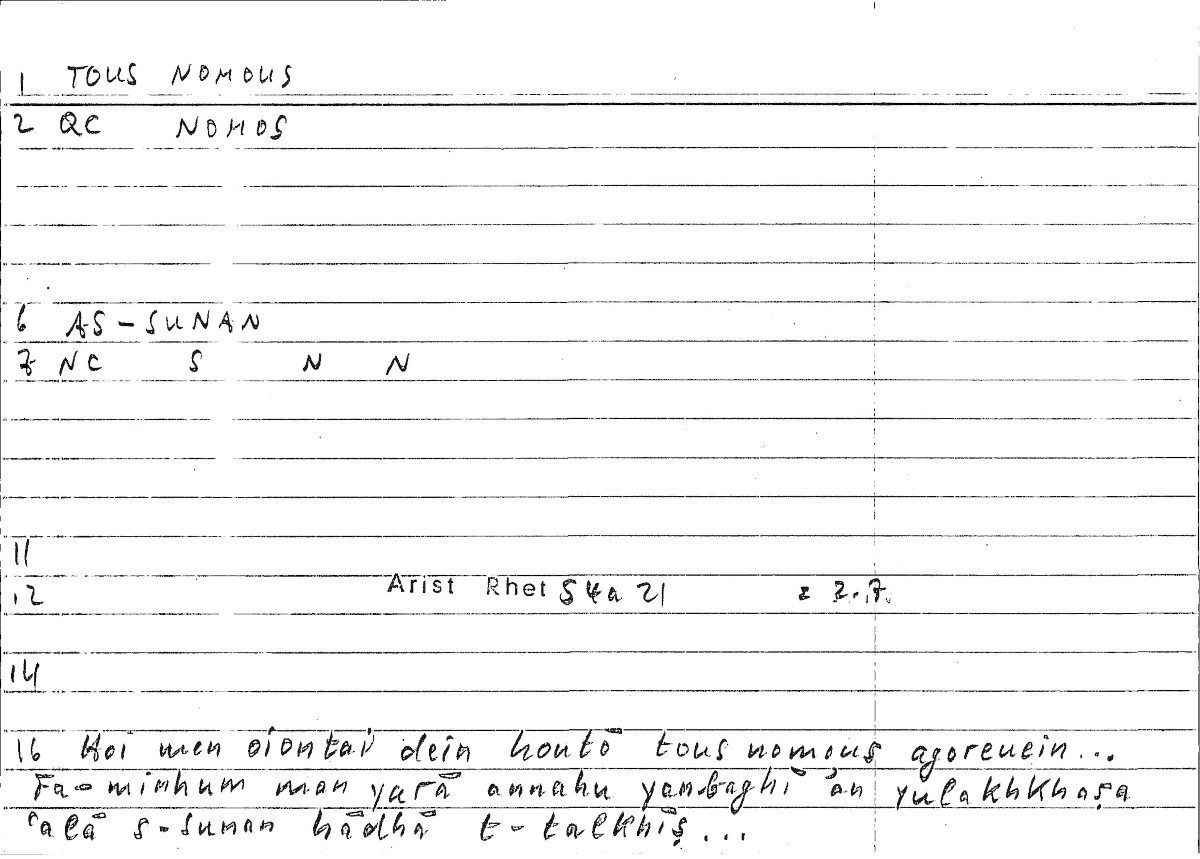 1 TOUS NOMOUS
2 QC NOMOS
6 AS-SUNAN
7 NC S N N
11
12 Arist Rhet 54a 21 = 2.7.
14
16 Hoi men oiontai dein houtō tous nomous agoreuein...
Fa-minhum man yarā annahu yanbaghī an yulakhkhaṣa
ʿalā s-sunan hādhā t-talkhīṣ...